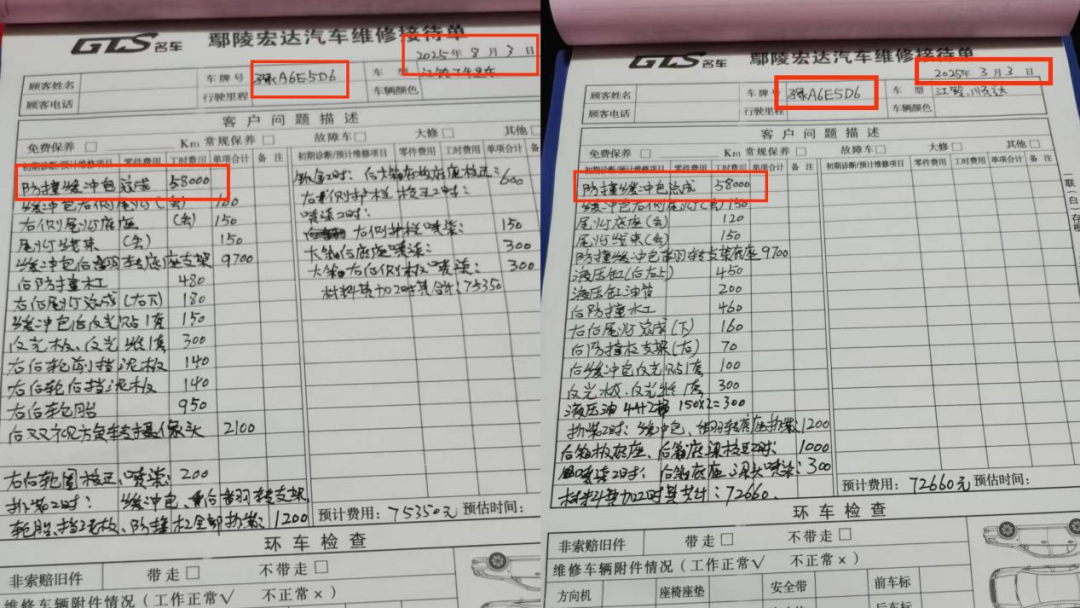 GLS名车 鄢陵宏达汽车维修接待单
2025年 8月 3日
顾客姓名 车牌号 豫A6E5D6 车型
顾客电话 行驶里程 车辆颜色
客户问题描述
免费保养□ Km常规保养□ 故障车□ 大修□ 其他□
初期诊断/预计维修项目 零件费用 工时费用 单项合计 备注 初期诊断/预计维修项目 零件费用 工时费用 单项合计 备注
防撞缓冲包总成 58000
缓冲包右侧尾灯(会)
右侧尾灯底座 (会) 150
尾灯线束 (会) 150
缓冲包后部翻转底座支架 9700
后防撞木工 480
右后尾灯总成(右下) 180
缓冲包后反光贴1套 150
反光板、反光 1套 300
右后轮前挡泥板 140
右后轮后挡泥板 140
右后轮胎 950
后双视方 摄像头 2100
右后轮圈校正、喷漆: 200
拆装工时: 缓冲包、 翻转支架
轮胎、挡泥板、防撞杠全部拆装: 1200
钣金工时: 600
右侧护栏校正工时:
喷漆工时:
右侧护栏喷漆: 150
大箱后底座喷漆: 300
大箱右后侧板喷漆: 300
材料费加工时费合计: 75350
预计费用: 75350元 预估时间:
环车检查
非索赔旧件 带走□ 不带走□
维修车辆附件情况(工作正常√ 不正常×)
GLS名车 鄢陵宏达汽车维修接待单
2025年 3月 3日
顾客姓名 车牌号 豫A6E5D6 车型 江铃.顺达
顾客电话 行驶里程 车辆颜色
客户问题描述
免费保养□ Km常规保养□ 故障车□ 大修□ 其他□
初期诊断/预计维修项目 零件费用 工时费用 单项合计 备注 初期诊断/预计维修项目 零件费用 工时费用 单项合计 备注
防撞缓冲包总成 58000
缓冲包右侧尾灯(会) 150
尾灯底座(会) 120
尾灯线束(会) 150
防撞缓冲包翻转支架底座 9700
液压缸(后右上) 450
液压缸油管 200
后防撞木工 460
右后尾灯总成(下) 160
后防撞杠支架(右) 70
后缓冲包反光贴1套 100
反光板、反光 1套 300
液压油 4升2桶 150×2=300
拆装工时: 缓冲包、翻转底座拆装: 1200
后箱板底座、后箱底梁校正工时: 1000
喷漆工时: 后箱底座、 喷漆: 300
材料费加工时费共计: 72660.
预计费用: 72660元 预估时间:
环车检查
非索赔旧件 带走□ 不带走□
维修车辆附件情况(工作正常√ 不正常×)
方向机 座椅座垫 安全带 前车标